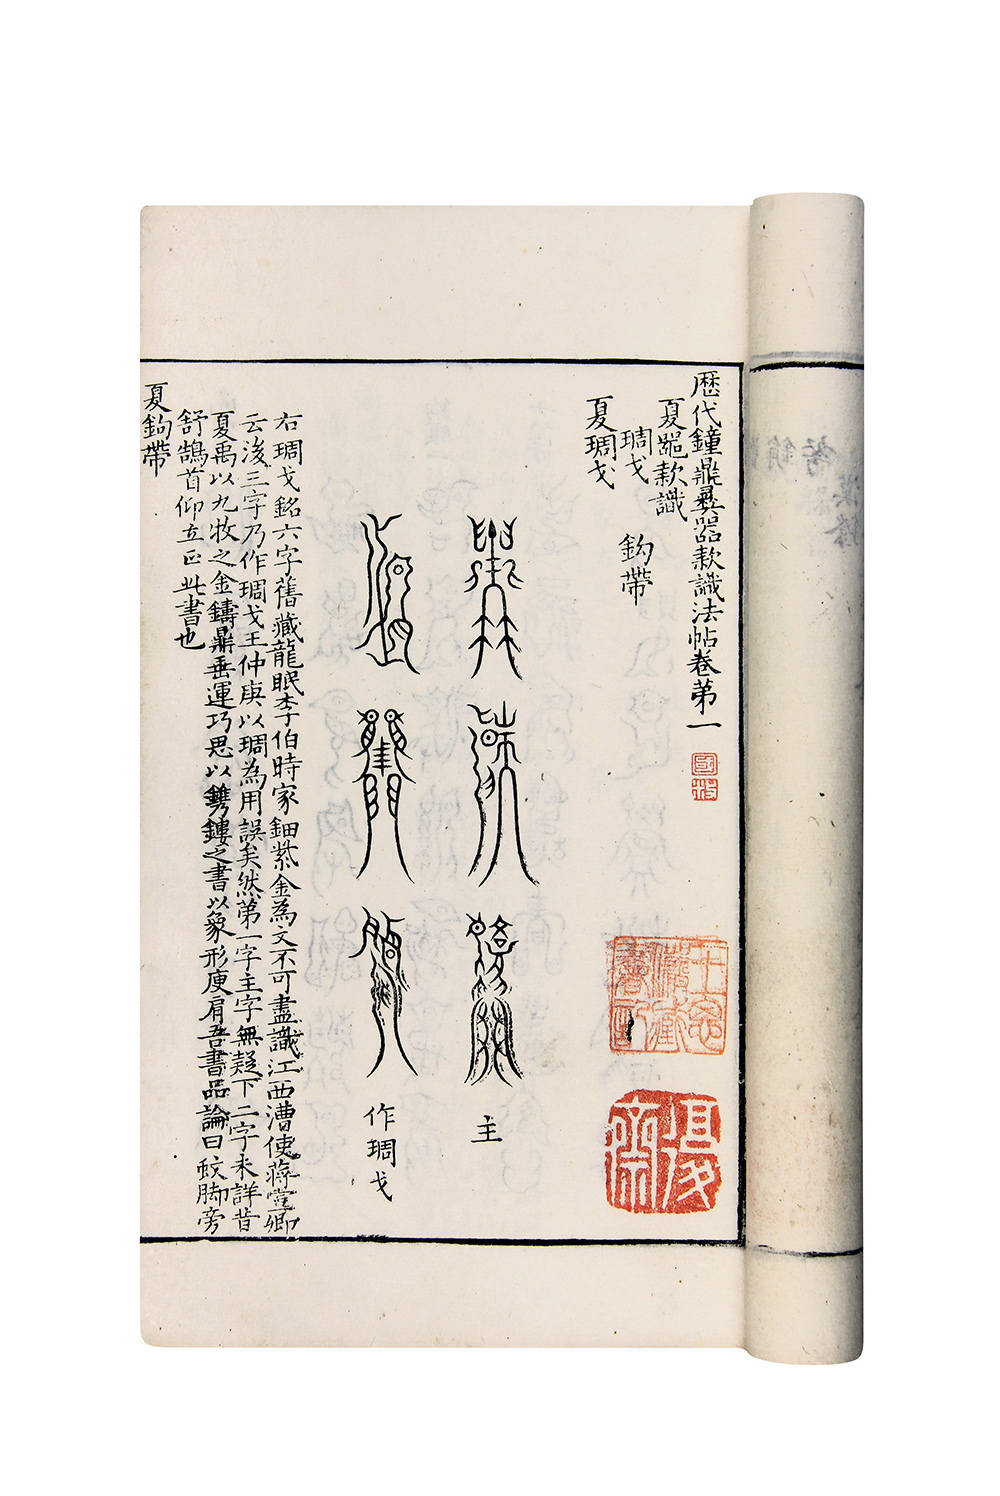 歷代鐘鼎彝器款識法帖卷第一
夏器款識
琱戈 鈎帶
夏琱戈
主
作琱戈
右琱戈銘六字舊藏龍眠李伯時家鈿紫金為文不可盡識江西漕使蔣宣卿
云後三字乃作琱戈王仲庚以琱為用誤矣然第一字主字無疑下二字未詳昔
夏禹以九牧之金鑄鼎垂運巧思以鐫鏤之書以象形庾肩吾書品論曰蚊脚旁
舒鵠首仰立正此書也
夏鈎帶